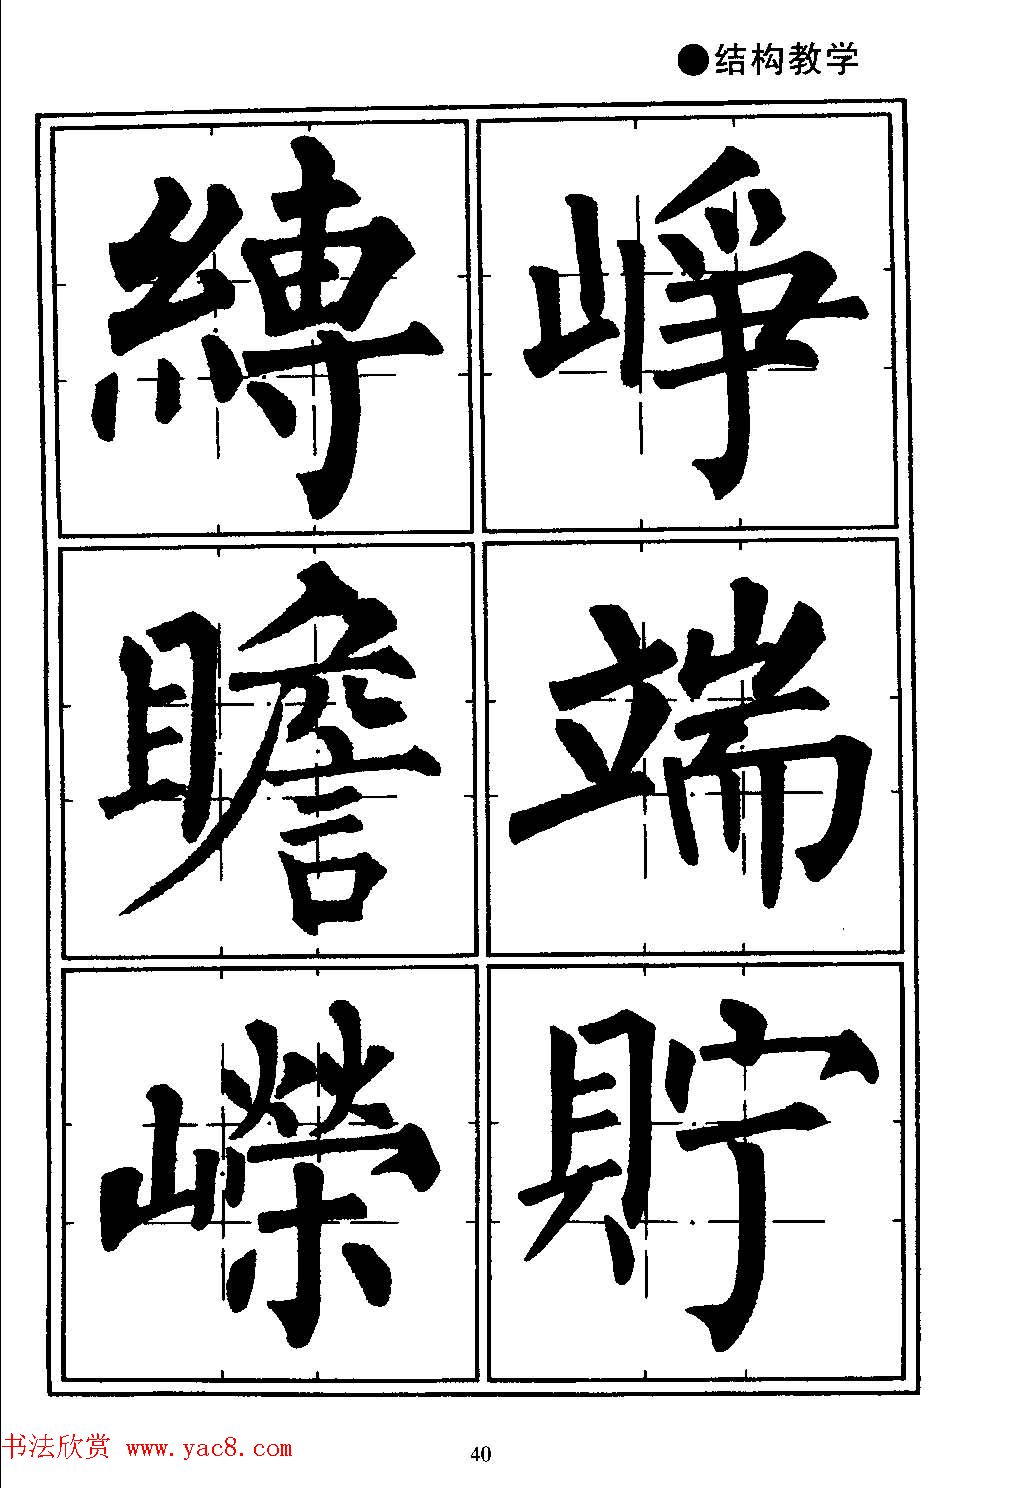 ●结构教学
縛 崢
瞻 端
嶸 貯
书法欣赏 www.yac8.com
40